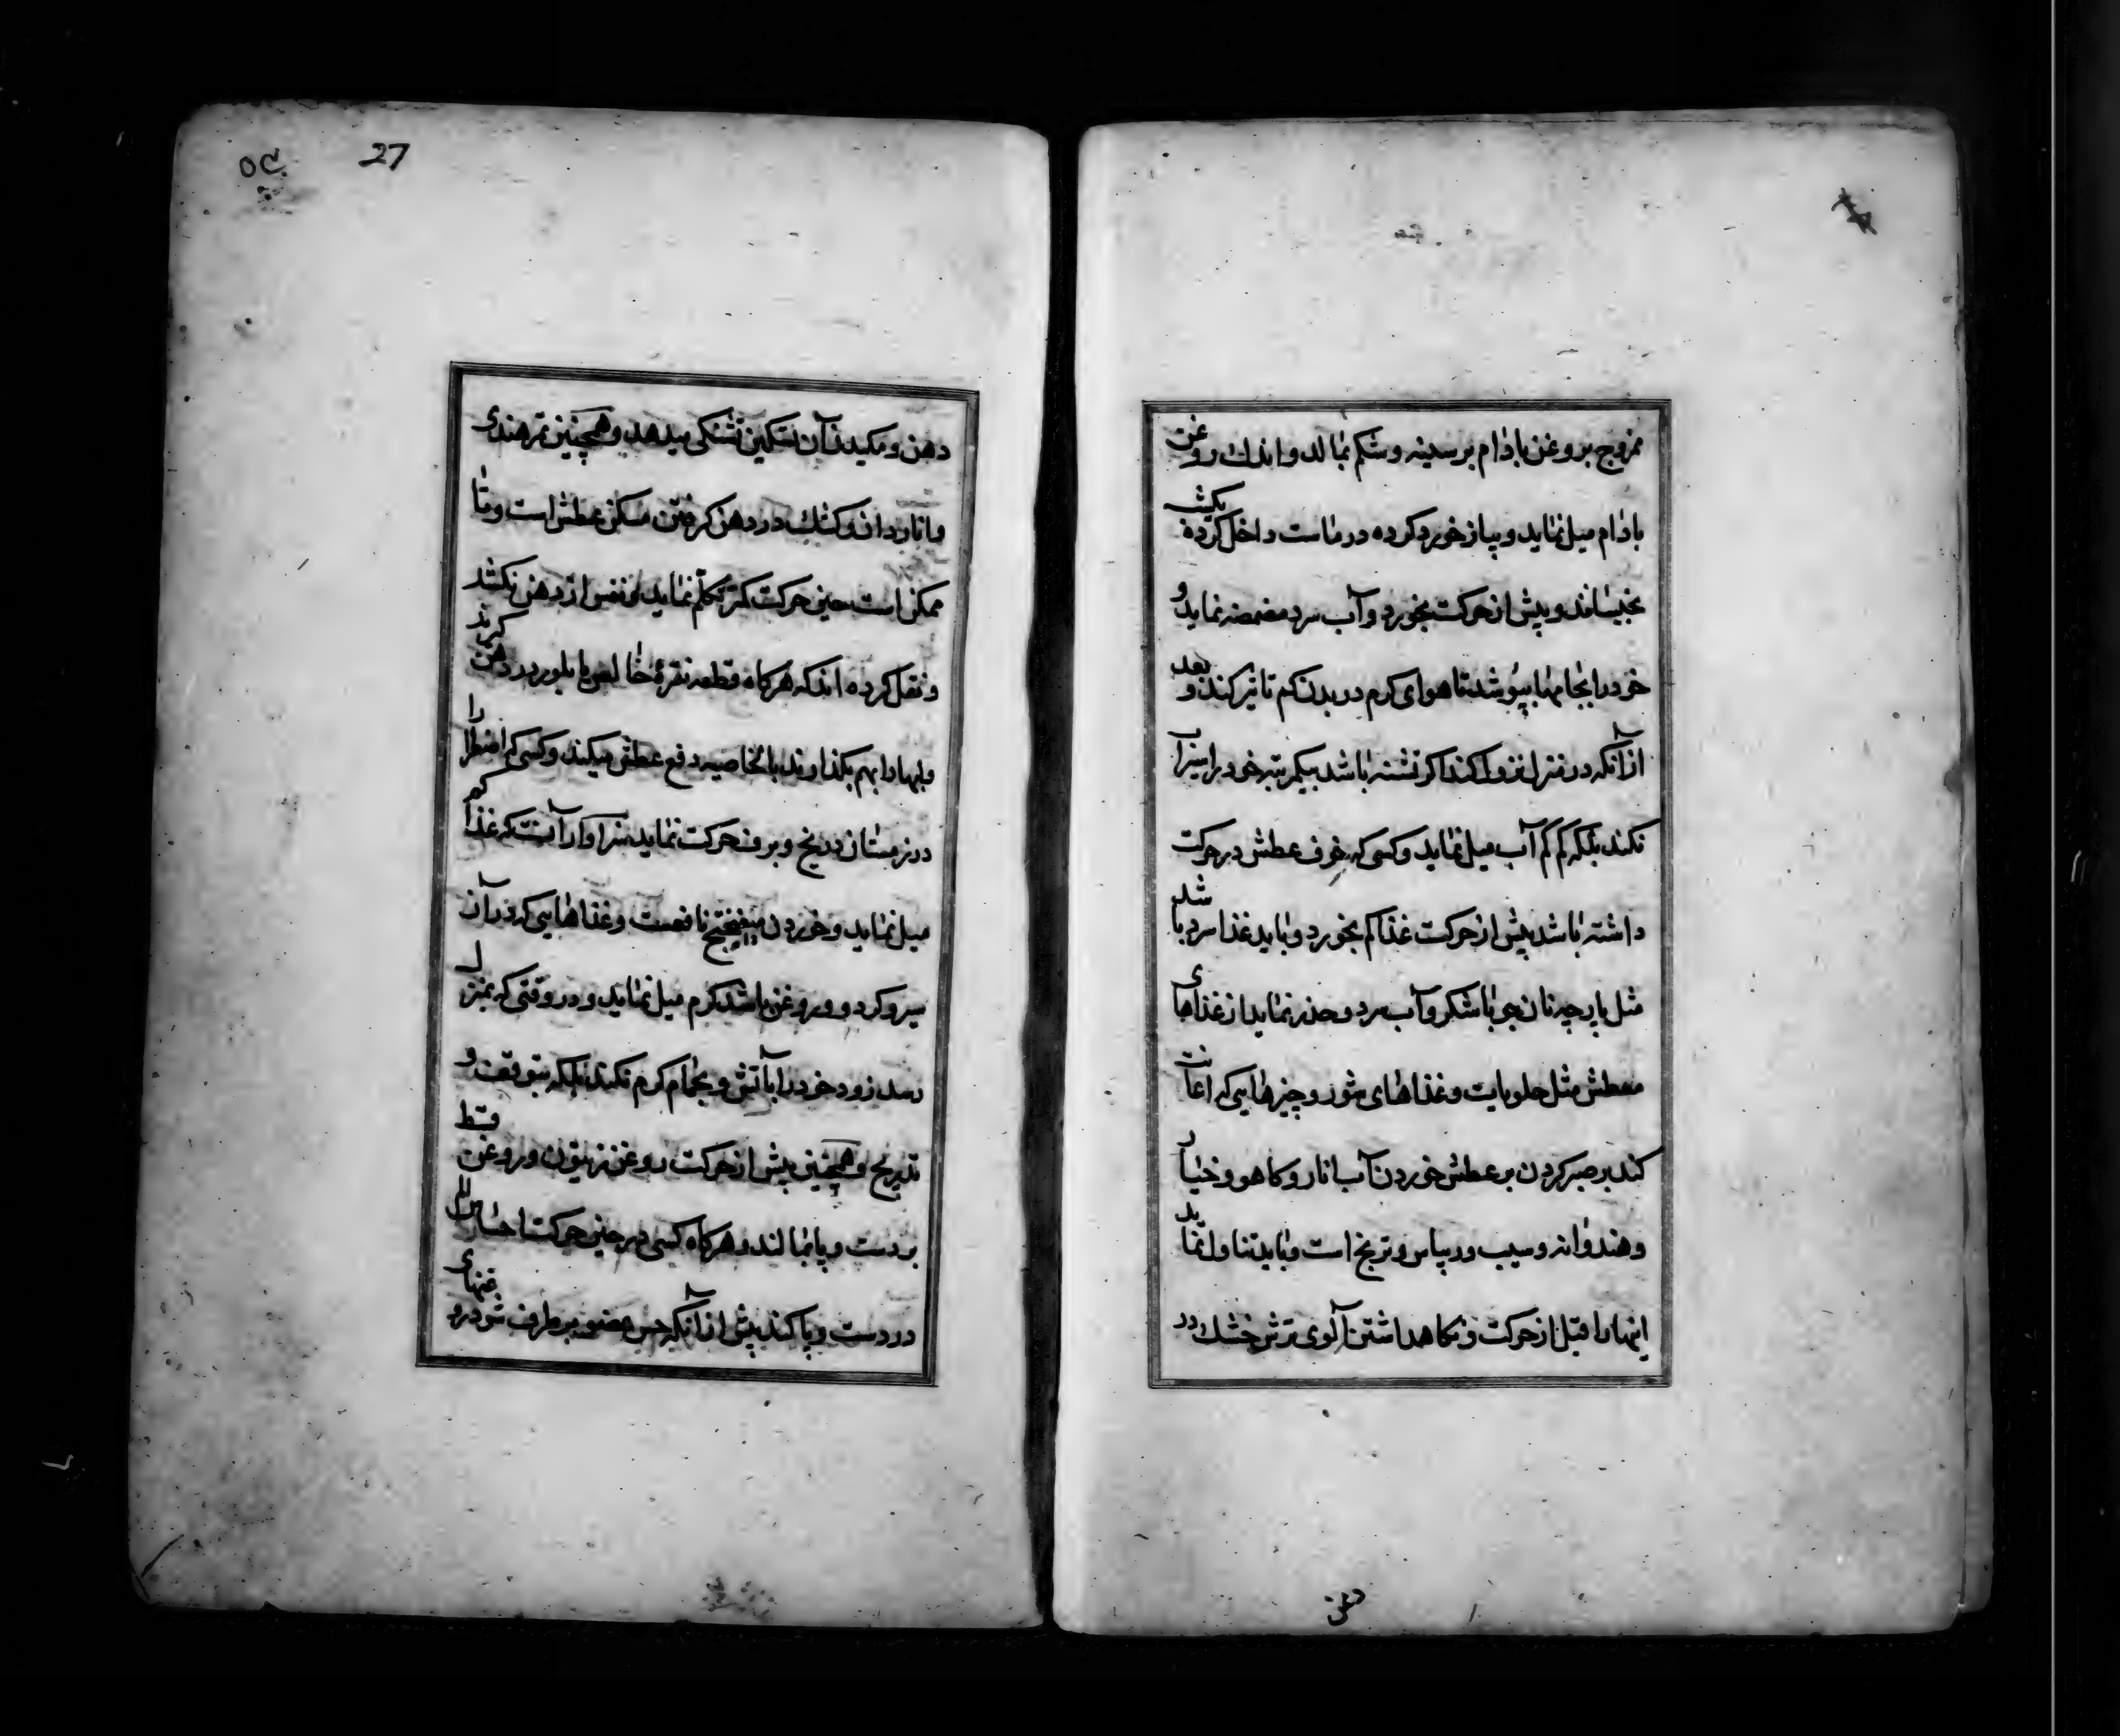 ممزوج بروغن بادام بر سینه و شکم بمالد و اندك روغن
بادام میل نماید و پیاز خورد کرده در ماست داخل کرده یکشب
بخیساند و پیش از حرکت بخورد و آب سرد مضمضه نماید و
خود را بجامها بپوشد تا هوای کرم در بدن کم تاثیر کند و بعد
از آنکه در منزل نزول کند اکر تشنه باشد بیکمرتبه خود را سیراب
نکند بلکه کم کم آب میل نماید و کسی که خوف عطش در حرکت
داشته باشد پیش از حرکت غذا کم بخورد و باید غذا سرد باشد
مثل پارچه نان جو با شکر و آب سرد و حذر نماید از غذاهای
معطش مثل حلویات و غذاهای شور و چیزهایی که اعانت
کند بر صبر کردن بر عطش خوردن آب انار و کاهو و خیار
و هندوانه و سیب و ریباس و ترنج است و باید تناول نماید
اینها را قبل از حرکت و نکاهداشتن آلوی ترش خشك در
دهن
27
دهن و مکیدن آن تسکین تشنکی میدهد و همچنین تمرهندی
و اناردان و کشك در دهن کرفتن مسکن عطش است و تا
ممکن است حین حرکت کمتر تکلم نماید نفس از دهن نکشد
و نقل کرده اند که هرکاه قطعه نقرهٔ خالص یا بلور در دهن کیرند
و لبها را بهم بکذارند بالخاصیه دفع عطش میکند و کسی که اضطرارا
در زمستان در یخ و برف حرکت نماید سزاوار آنست که غذا کم
میل نماید و خوردن میفختج نافعست و غذاهایی که در آن
سیر و کردو و روغن باشد کرم میل نماید و در وقتی که بمنزل
رسد زود خود را بآتش و بحمام کرم نکند بلکه بتوقف و
تدریج و همچنین پیش از حرکت روغن زیتون و روغن قسط
بر دست و پا بمالند و هرکاه کسی در حین حرکت احساس الم
در دست و پا کند پیش از آنکه حس عضو برطرف شود روغنهای